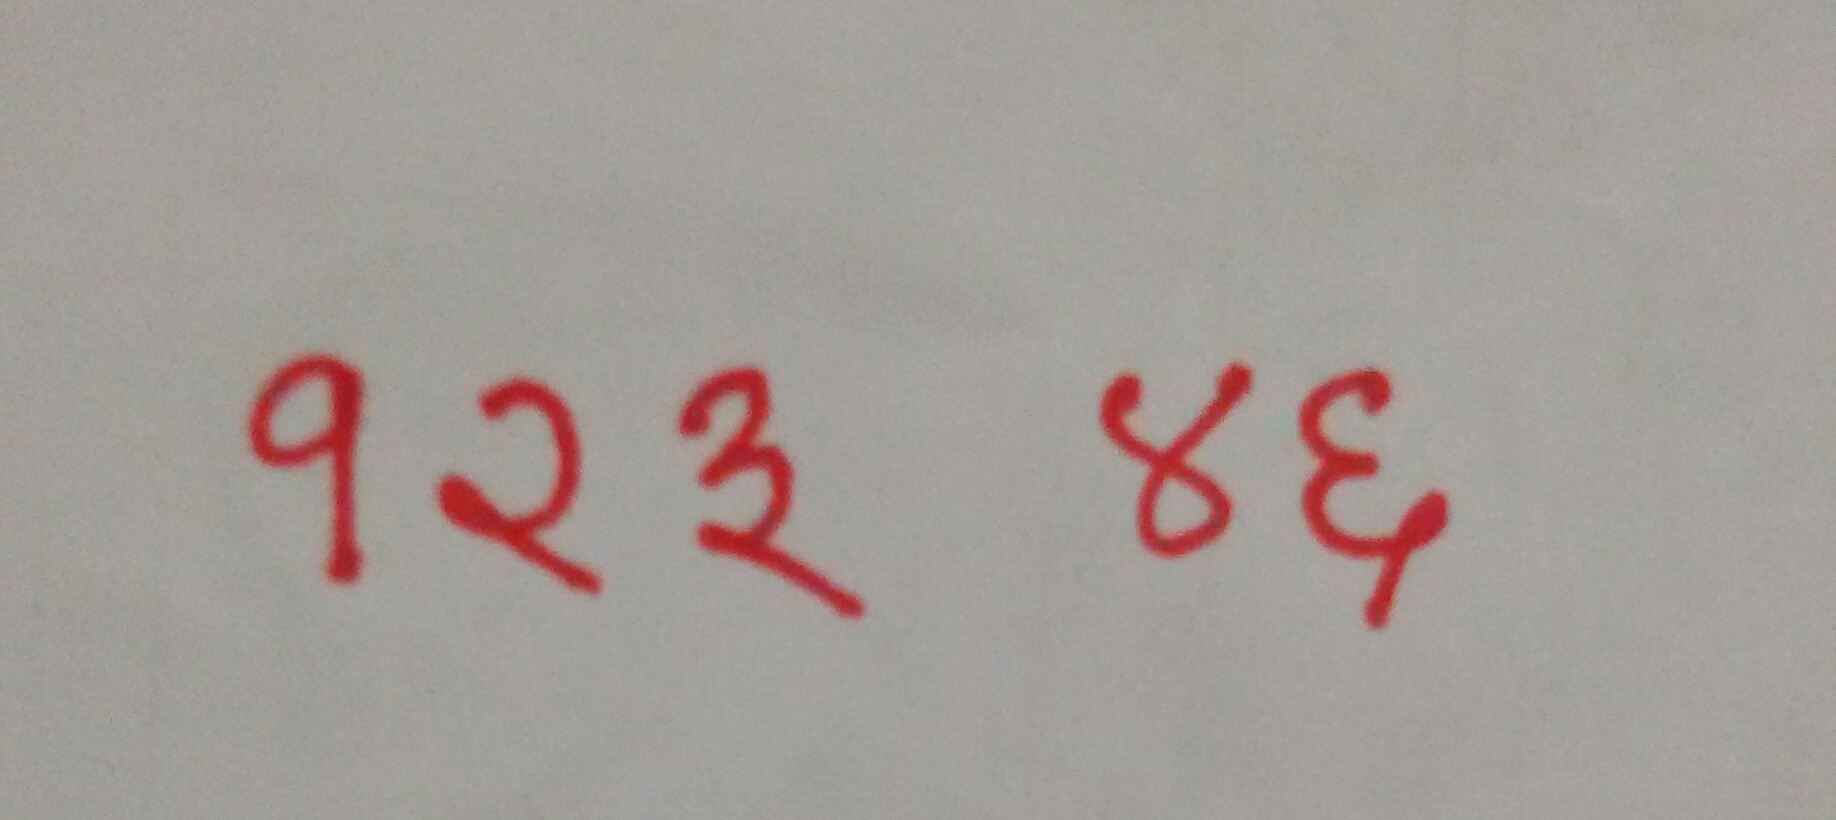 १२३ ४६